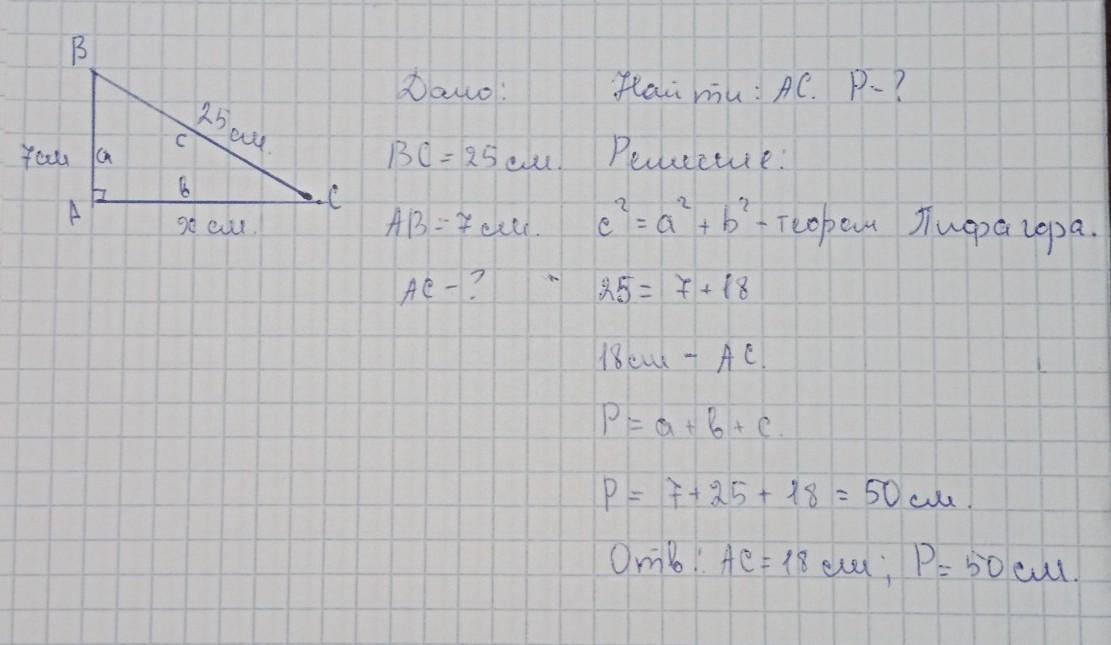 B
25 см.
c
7см
a
в
A
C
x см.
Дано:
BC = 25 см.
AB = 7 см.
AC - ?
Найти: AC. P - ?
Решение:
c² = a² + b² - теорем Пифагора.
25 = 7 + 18
18см - AC.
P = a + в + c.
P = 7 + 25 + 18 = 50 см.
Отв: AC = 18 см; P = 50 см.